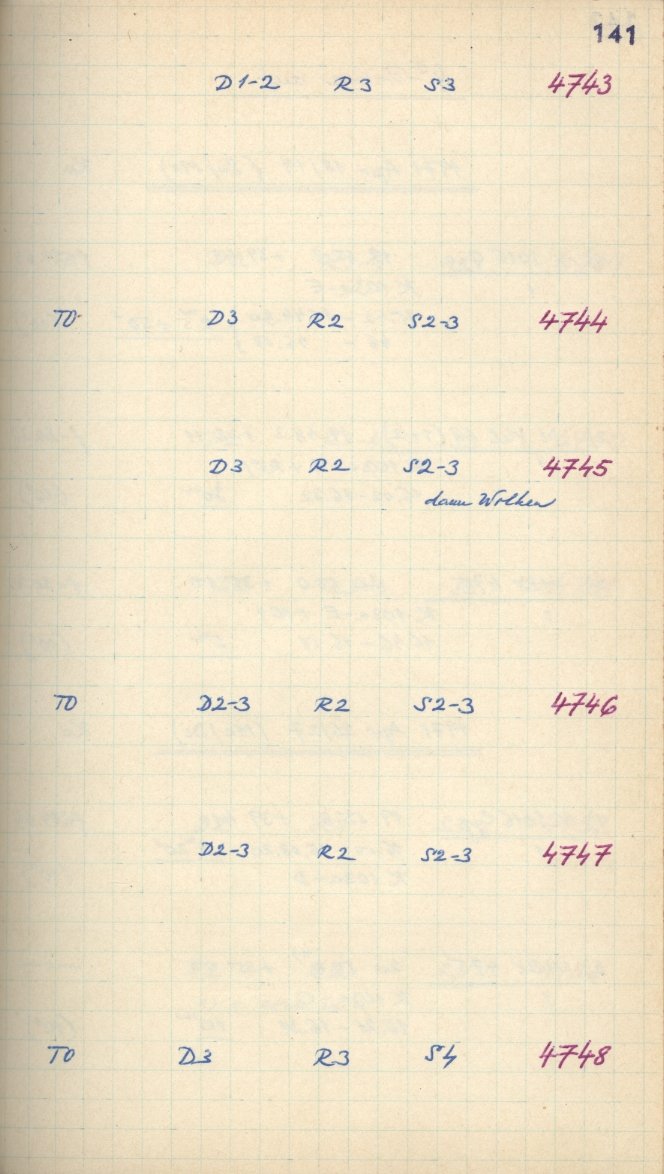 141
D1-2 R3 S3 4743
TO D3 R2 S2-3 4744
D3 R2 S2-3 4745
dann Wolken
TO D2-3 R2 S2-3 4746
D2-3 R2 S2-3 4747
TO D3 R3 S4 4748